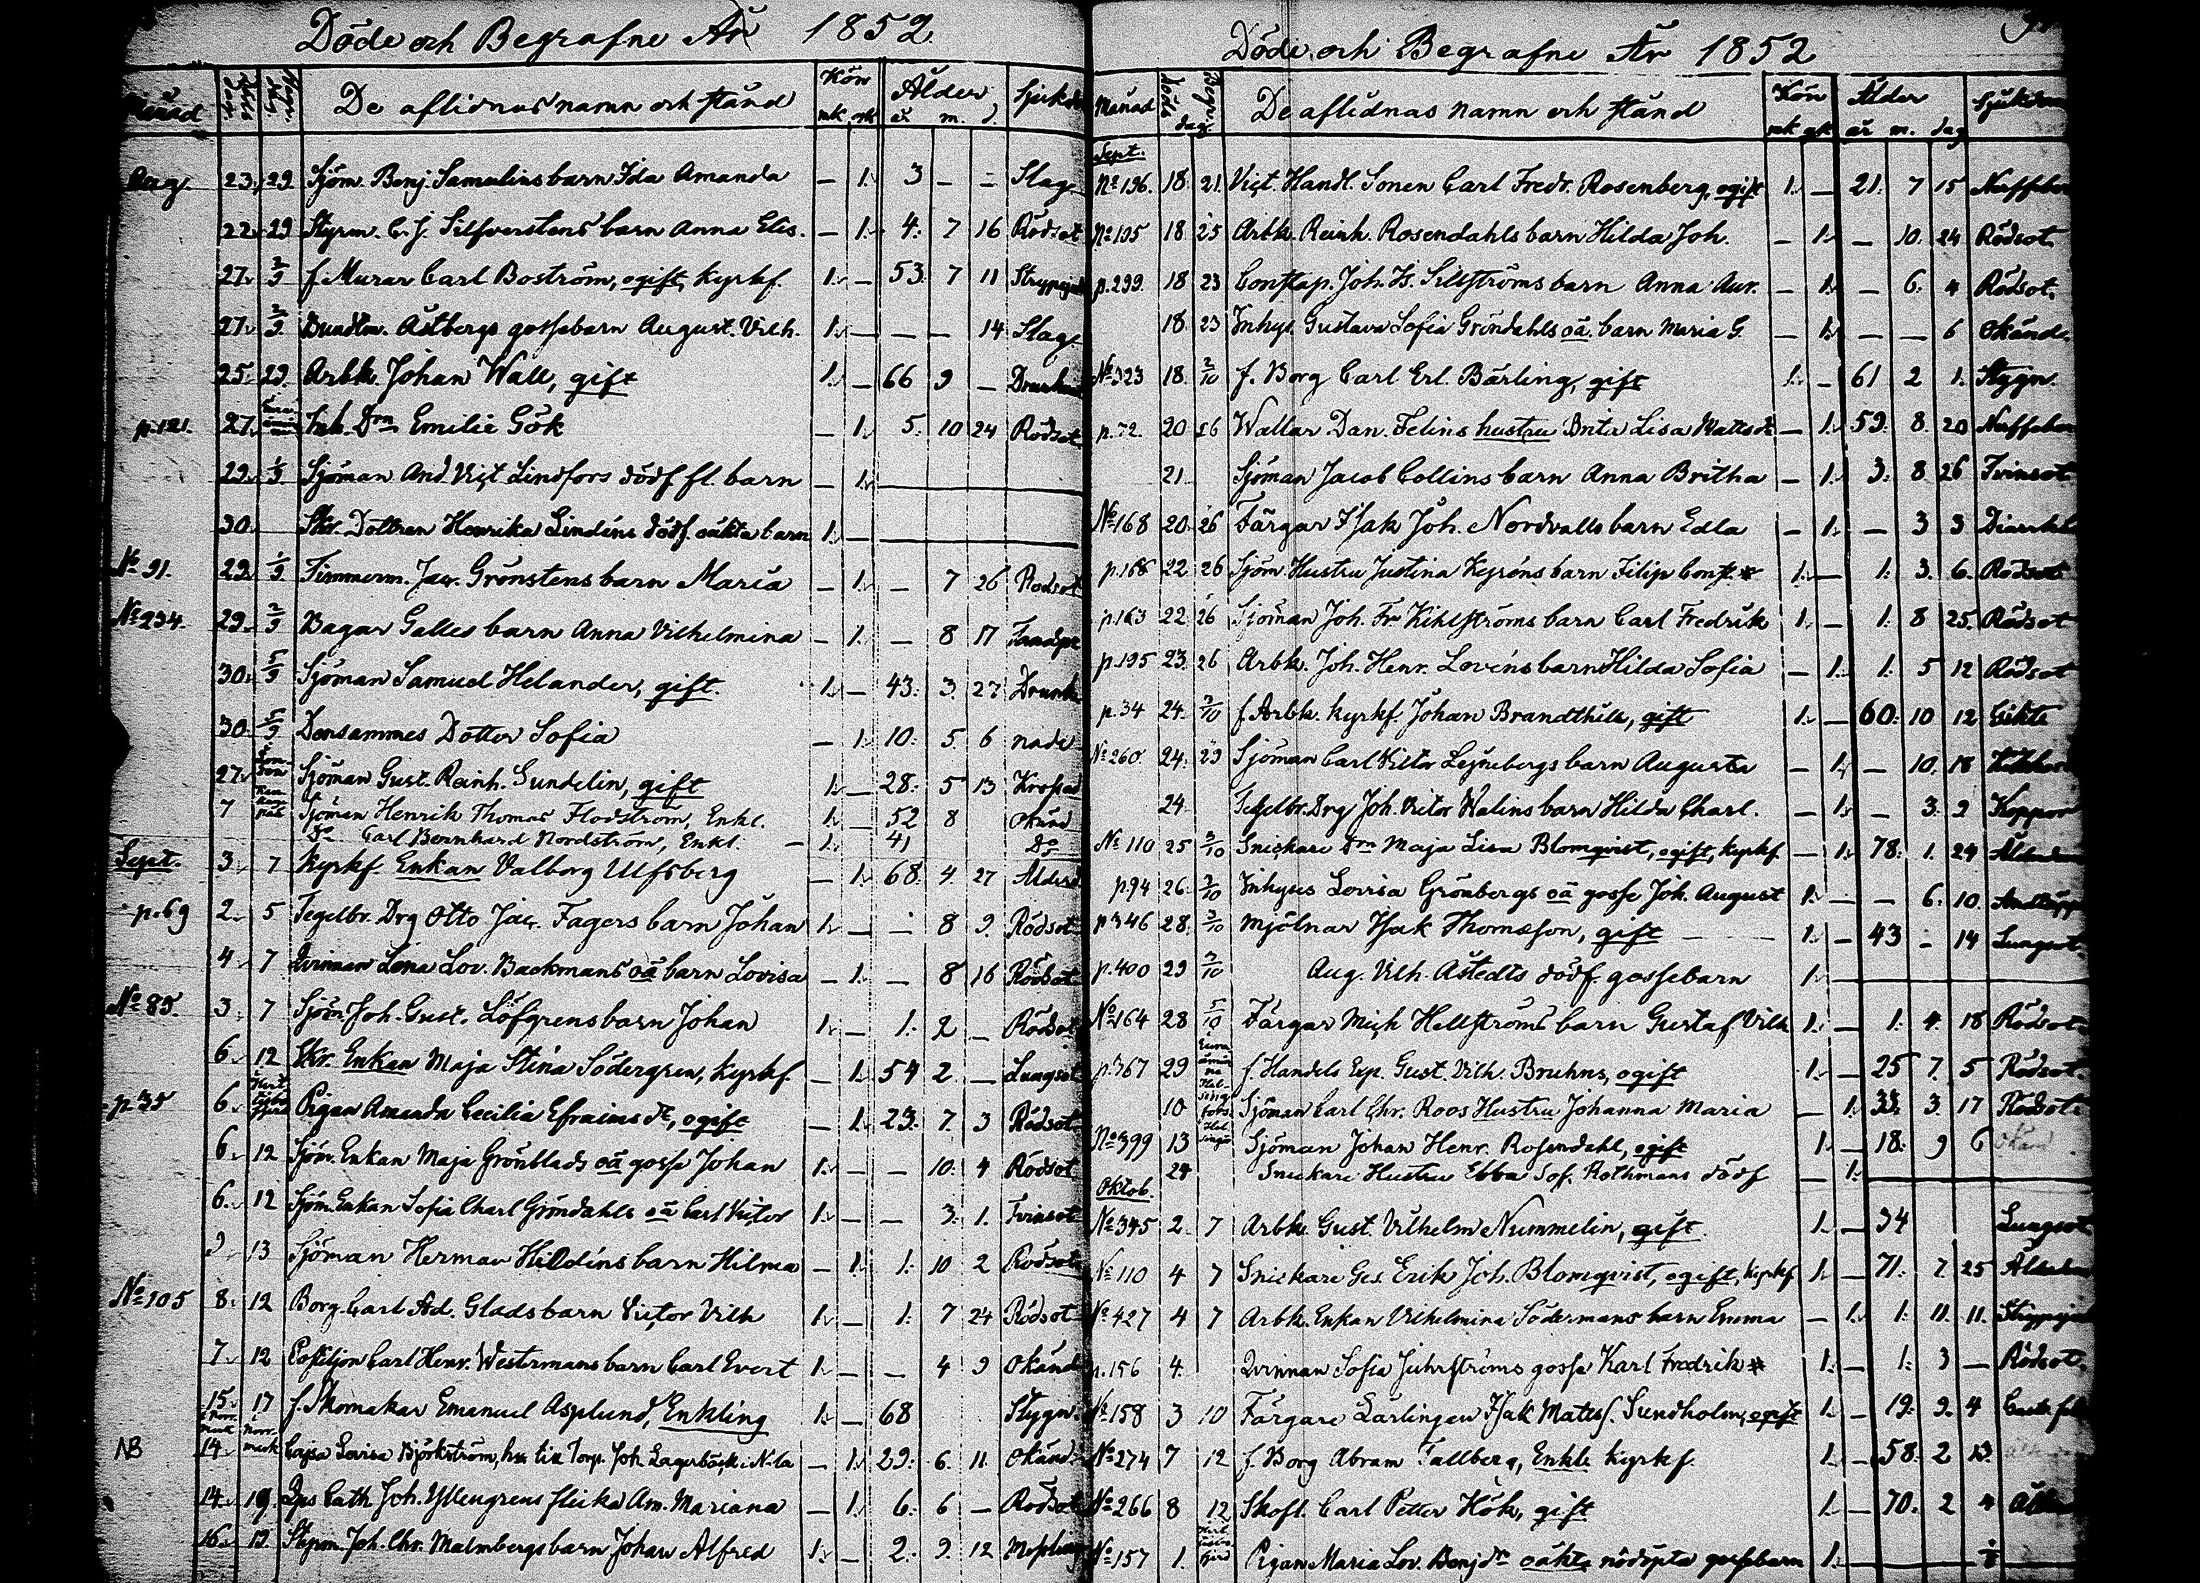 Döde och Begrafne År 1852.
Månad De aflidnas namn och stånd Kön mk qk Ålder år m. d. Sjukdom
Aug. 23. 29 Sjöm. Benj. Samelins barn Ida Amanda — 1. 3 — — Slag
22. 29 Styrm. C. J. Silfverstens barn Anna Elis. — 1. 4. 7 16 Rödsot
27. 2/9 f. Murar Carl Boström, ogift, kyrkf. 1. — 53. 7 11
27. 2/9 Bundtm. Åstbergs gossebarn August. Vilh. 1. — — — 14 Slag
25. 29. Arbk. Johan Wall, gift 1. — 66 9 —
p. 121. 27. Inh. Drn Emilie Gök — 1. 5. 10 24 Rödsot
29. 1/9 Sjöman And. Vict Lindfors dödf. fl. barn — 1.
30. Skr. Dottren Henrika Lindéns dödf. oäkta barn 1.
No 91. 29. 1/9 Timmerm. Jac. Grönstens barn Maria — 1. — 7 26 Rödsot
No 234. 29. 2/9 Bagar Galles barn Anna Vilhelmina — 1. — 8 17
30. 5/9 Sjöman Samuel Helander, gift. 1. — 43. 3. 27 Drunk
30. 5/9 Densammes Dotter Sofia — 1. 10. 5 6 nade
27. Sjöman Gust. Reinh. Sundelin, gift 1. — 28. 5 13
7 Sjöman Henrik Thomas Flodström, Enkl. 1. — 52 8 Okänd
Do Carl Bernhard Nordström, Enkl. — 1. 41 Do
Sept. 3. 7 Kyrkf. Enkan Valborg Ulfsberg — 1. 68. 4. 27 Ålderd
p. 69 2. 5 Tegelbr. Drg Otto Jac. Fagers barn Johan 1. — — 8 9. Rödsot
4. 7 Qvinnan Lena Lov. Backmans oä barn Lovisa — 1. — 8 16 Rödsot
No 85. 3. 7 Sjöm. Joh. Gust. Löfgrens barn Johan 1. — 1. 2 — Rödsot
6. 12 Skr. Enkan Maja Stina Södergren, kyrkf. — 1. 54 2. — Lungsot
p 35 6. Pigan Amanda Cecilia Efraims dr, ogift — 1. 23. 7. 3 Rödsot
6. 12 Sjöm. Enkan Maja Grönblads oä gosse Johan 1. — — 10. 4 Rödsot
6. 12 Sjöm. Enkan Sofia Charl Gröndahls oä Carl Victor 1. — — 3. 1. Tvinsot
9. 13 Sjöman Herman Hildéns barn Hilma — 1. 1. 10 2 Rödsot
No 105 8. 12 Borg. Carl Ad. Glads barn Victor Vilh 1. — 1. 7 24 Rödsot
7. 12 Postiljon Carl Henr. Westermans barn Carl Evert 1. — — 4 9 Okänd
15. 17 f. Skomakar Emanuel Asplund, Enkling 1. — 68 Stygn
NB 14. Norrmark Cajsa Lovisa Björkström, hu till Torp. Joh Lagerbäck i N.la — 1. 29. 6. 11 Okänd
14. 19 Joh. Yllengrens flicka Am. Mariana — 1. 6. 6 — Rödsot
16. 19. Styrm. Joh. Chr. Malmbergs barn Johan Alfred 1. — 2. 9. 12
Döde och Begrafne År 1852
Månad Död Begr. dag De aflidnas namn och stånd Kön mk qk Ålder år m. dag Sjukdom
Sept.
No 196. 18. 21. Vict. Handl. Sonen Carl Fredr. Rosenberg, ogift 1. — 21. 7 15
No 195 18 25 Arbk. Reinh. Rosendahls barn Hilda Joh. — 1. — 10. 24 Rödsot.
p. 299. 18 23 Constap. Joh. Is. Sillströms barn Anna Aur. — 1. — 6. 4 Rödsot.
18. 23 Inhys. Gustava Sofia Gröndahls oä. barn Maria G. — 1. — — 6 Okänd.
No 323 18. 2/10 f. Borg Carl Erl. Bärling, gift 1. — 61 2 1. Stygn.
p. 72. 20 26 Wallar Dan. Felins hustru Brita Lisa Matts dr — 1. 59. 8. 20
21. Sjöman Jacob Collins barn Anna Britha — 1. 3. 8 26 Tvinsot
No 168 20. 26 Färgar Isak Joh. Nordvalls barn Edla — 1. — 3 3
p. 168 22. 26 Sjöm. Hustru Justina Kyréns barn Filip Const. * 1. — 1. 3. 6. Rödsot
p. 163 22. 26 Sjöman Joh. Fr. Kihlströms barn Carl Fredrik 1. — 1. 8 25. Rödsot
p. 195 23. 26 Arbk. Joh. Henr. Lovéns barn Hilda Sofia — 1. 1. 5 12 Rödsot
p. 34 24. 2/10 f. Arbk. kyrkf. Johan Brandthill, gift 1. — 60. 10 12 Gikt
No 260. 24. 29 Sjöman Carl Victor barn Augusta — 1. — 10. 18
24. Tegelbr. Drg Joh. Victor Walins barn Hilda Charl. — 1. — 3. 2 Koppor
No 110 25 2/10 Snickare Drn Maja Lisa Blomqvist, ogift, kyrkf. — 1. 78. 1. 24
p. 94 26. 2/10 Inhyses Lovisa Grönbergs oä gosse Joh. August 1. — — 6. 10.
p 346 28. 3/10 Mjölnar Isak Thomasson, gift — 1. — 43 — 14 Lungsot
p. 400 29 2/10 Aug. Vilh. Åstedts dödf. gossebarn 1.
No 164 28 5/10 Färgar Mich Hellströms barn Gustaf Vilh 1. — 1. 4. 18 Rödsot
p. 367 29 f. Handels Exp. Gust. Vilh. Bruhns, ogift 1. — 25 7. 5 Rödsot
10 Sjöman Carl Chr. Roos Hustru Johanna Maria — 1. 33. 3. 17 Rödsot
No 399 13 Sjöman Johan Henr. Rosendahl, ogift 1. — 18. 9 6
24 Snickare Hustru Ebba Sof. Rothmans dödf — 1.
Oktob.
No 345 2. 7 Arbk Gust. Vilhelm Nummelin, gift 1. — 34 Lungsot
No 110 4 7 Snickare Ges. Erik Joh. Blomqvist, ogift, kyrkf 1. — 71. 7 25
No 427 4 7 Arbk. Enkan Vilhelmina Södermans barn Emma — 1. 1. 11. 11.
p. 156 4. Qvinnan Sofia gosse Karl Fredrik * 1. — 1. 3 — Rödsot
No 158 3 10 Färgare Lärlingen Isak Matts. Sundholm, ogift 1. — 19. 9. 4
No 274 7 12 f. Borg Abram Tallberg, Enkl. kyrkf. 1. — 58. 2 13.
No 266 8 12 Skofl. Carl Petter Hök, gift 1. — 70. 2 4
No 157 1. Pigan Maria Lov. Benj dr oäkta nödöpta gossebarn 1. — ½